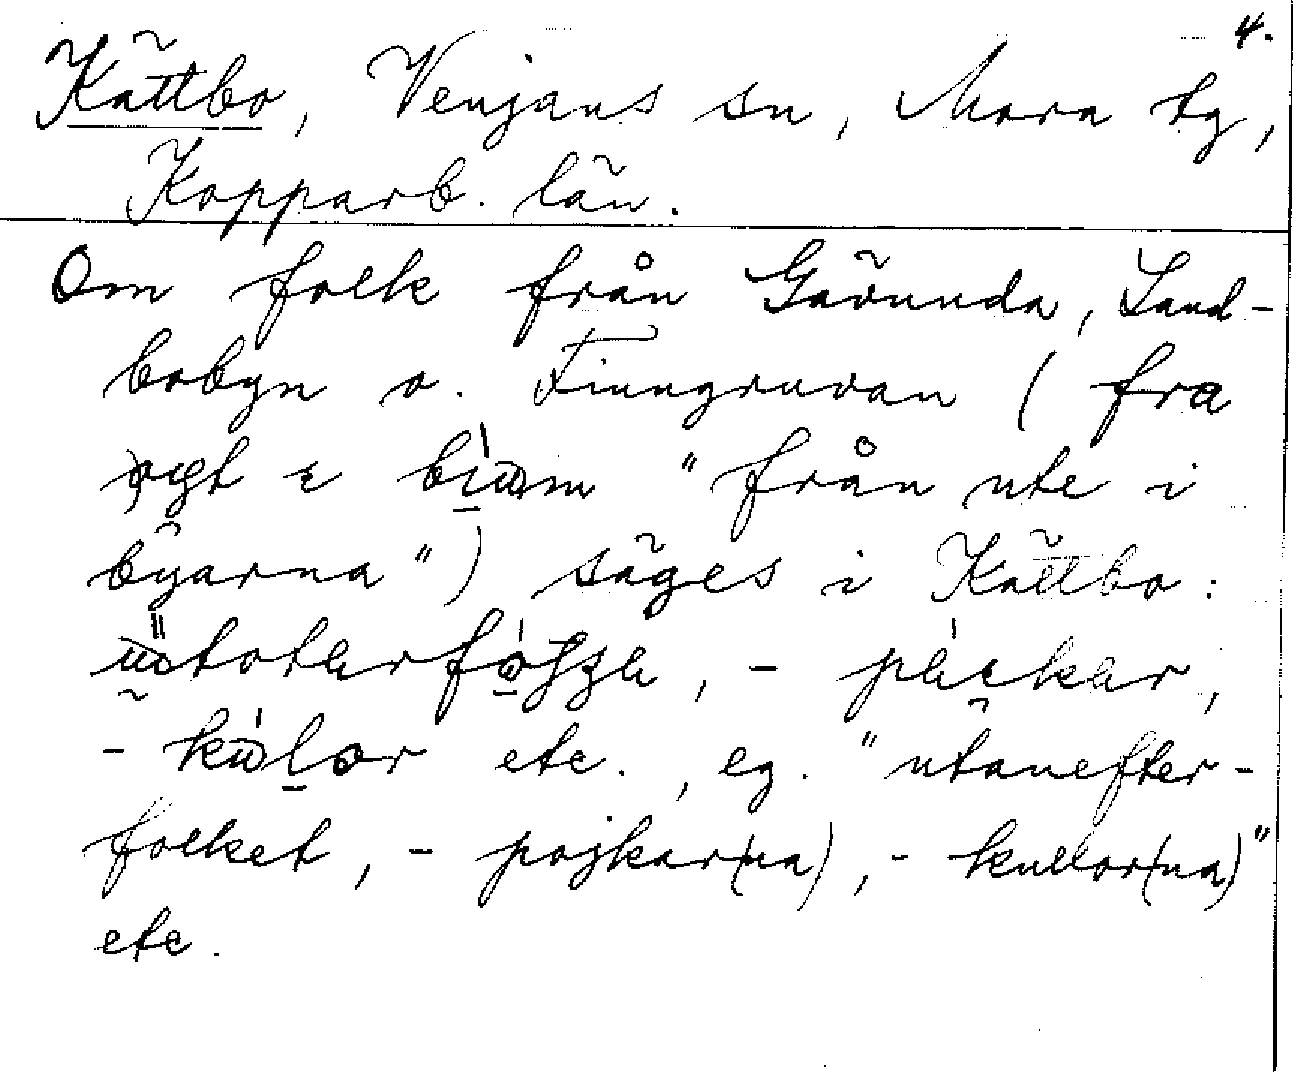 4.
Kättbo, Venjans sn, Mora tg,
Kopparb. län.
Om folk från Gävunda, Land-
bobyn o. Finngruvan (fra
i "från ute i
byarna") säges i Kättbo:
etc., eg. "utanefter-
folket, - pojkar(na), - kullor(na)"
etc.